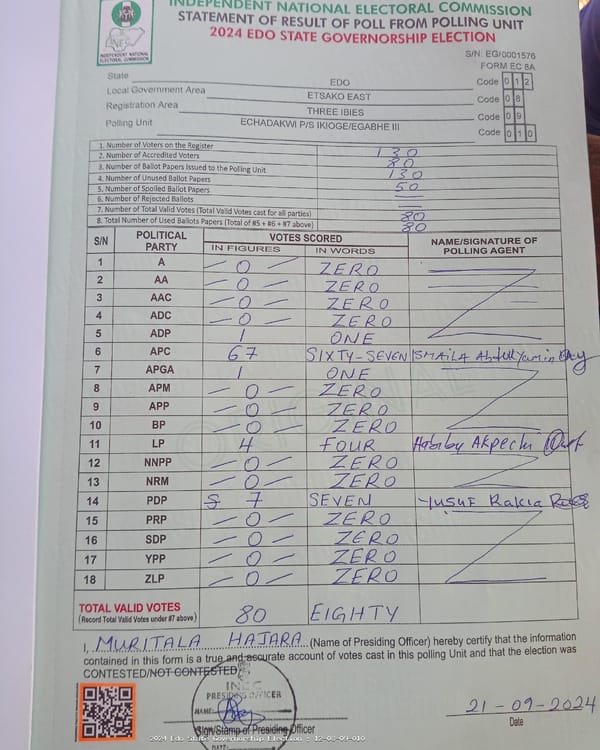 INDEPENDENT NATIONAL ELECTORAL COMMISSION
STATEMENT OF RESULT OF POLL FROM POLLING UNIT
2024 EDO STATE GOVERNORSHIP ELECTION
INEC
INDEPENDENT NATIONAL ELECTORAL COMMISSION
S/N: EG/0001576
FORM EC 8A
State EDO Code 0 1 2
Local Government Area ETSAKO EAST Code 0 8
Registration Area THREE IBIES Code 0 9
Polling Unit ECHADAKWI P/S IKIOGE/EGABHE III Code 0 1 0
1. Number of Voters on the Register 130
2. Number of Accredited Voters 80
3. Number of Ballot Papers Issued to the Polling Unit 130
4. Number of Unused Ballot Papers 50
5. Number of Spoiled Ballot Papers —
6. Number of Rejected Ballots —
7. Number of Total Valid Votes (Total Valid Votes cast for all parties) 80
8. Total Number of Used Ballots Papers (Total of #5 + #6 + #7 above) 80
S/N POLITICAL PARTY VOTES SCORED NAME/SIGNATURE OF POLLING AGENT
IN FIGURES IN WORDS
1 A — 0 — ZERO
2 AA — 0 — ZERO
3 AAC — 0 — ZERO
4 ADC — 0 — ZERO
5 ADP 1 ONE
6 APC 67 SIXTY-SEVEN SMAILA
7 APGA 1 ONE
8 APM — 0 — ZERO
9 APP — 0 — ZERO
10 BP — 0 — ZERO
11 LP 4 FOUR Habiby Akpechi
12 NNPP — 0 — ZERO
13 NRM — 0 — ZERO
14 PDP 7 SEVEN Yusuf Rakia
15 PRP — 0 — ZERO
16 SDP — 0 — ZERO
17 YPP — 0 — ZERO
18 ZLP — 0 — ZERO
TOTAL VALID VOTES 80 EIGHTY
(Record Total Valid Votes under #7 above)
I, MURITALA HAJARA (Name of Presiding Officer) hereby certify that the information
contained in this form is a true and accurate account of votes cast in this polling Unit and that the election was
CONTESTED/NOT CONTESTED.
INEC
PRESIDING OFFICER
NAME:
Sign/Stamp of Presiding Officer
DATE:
21-09-2024
Date
2024 Edo State Governorship Election - 12-08-09-010